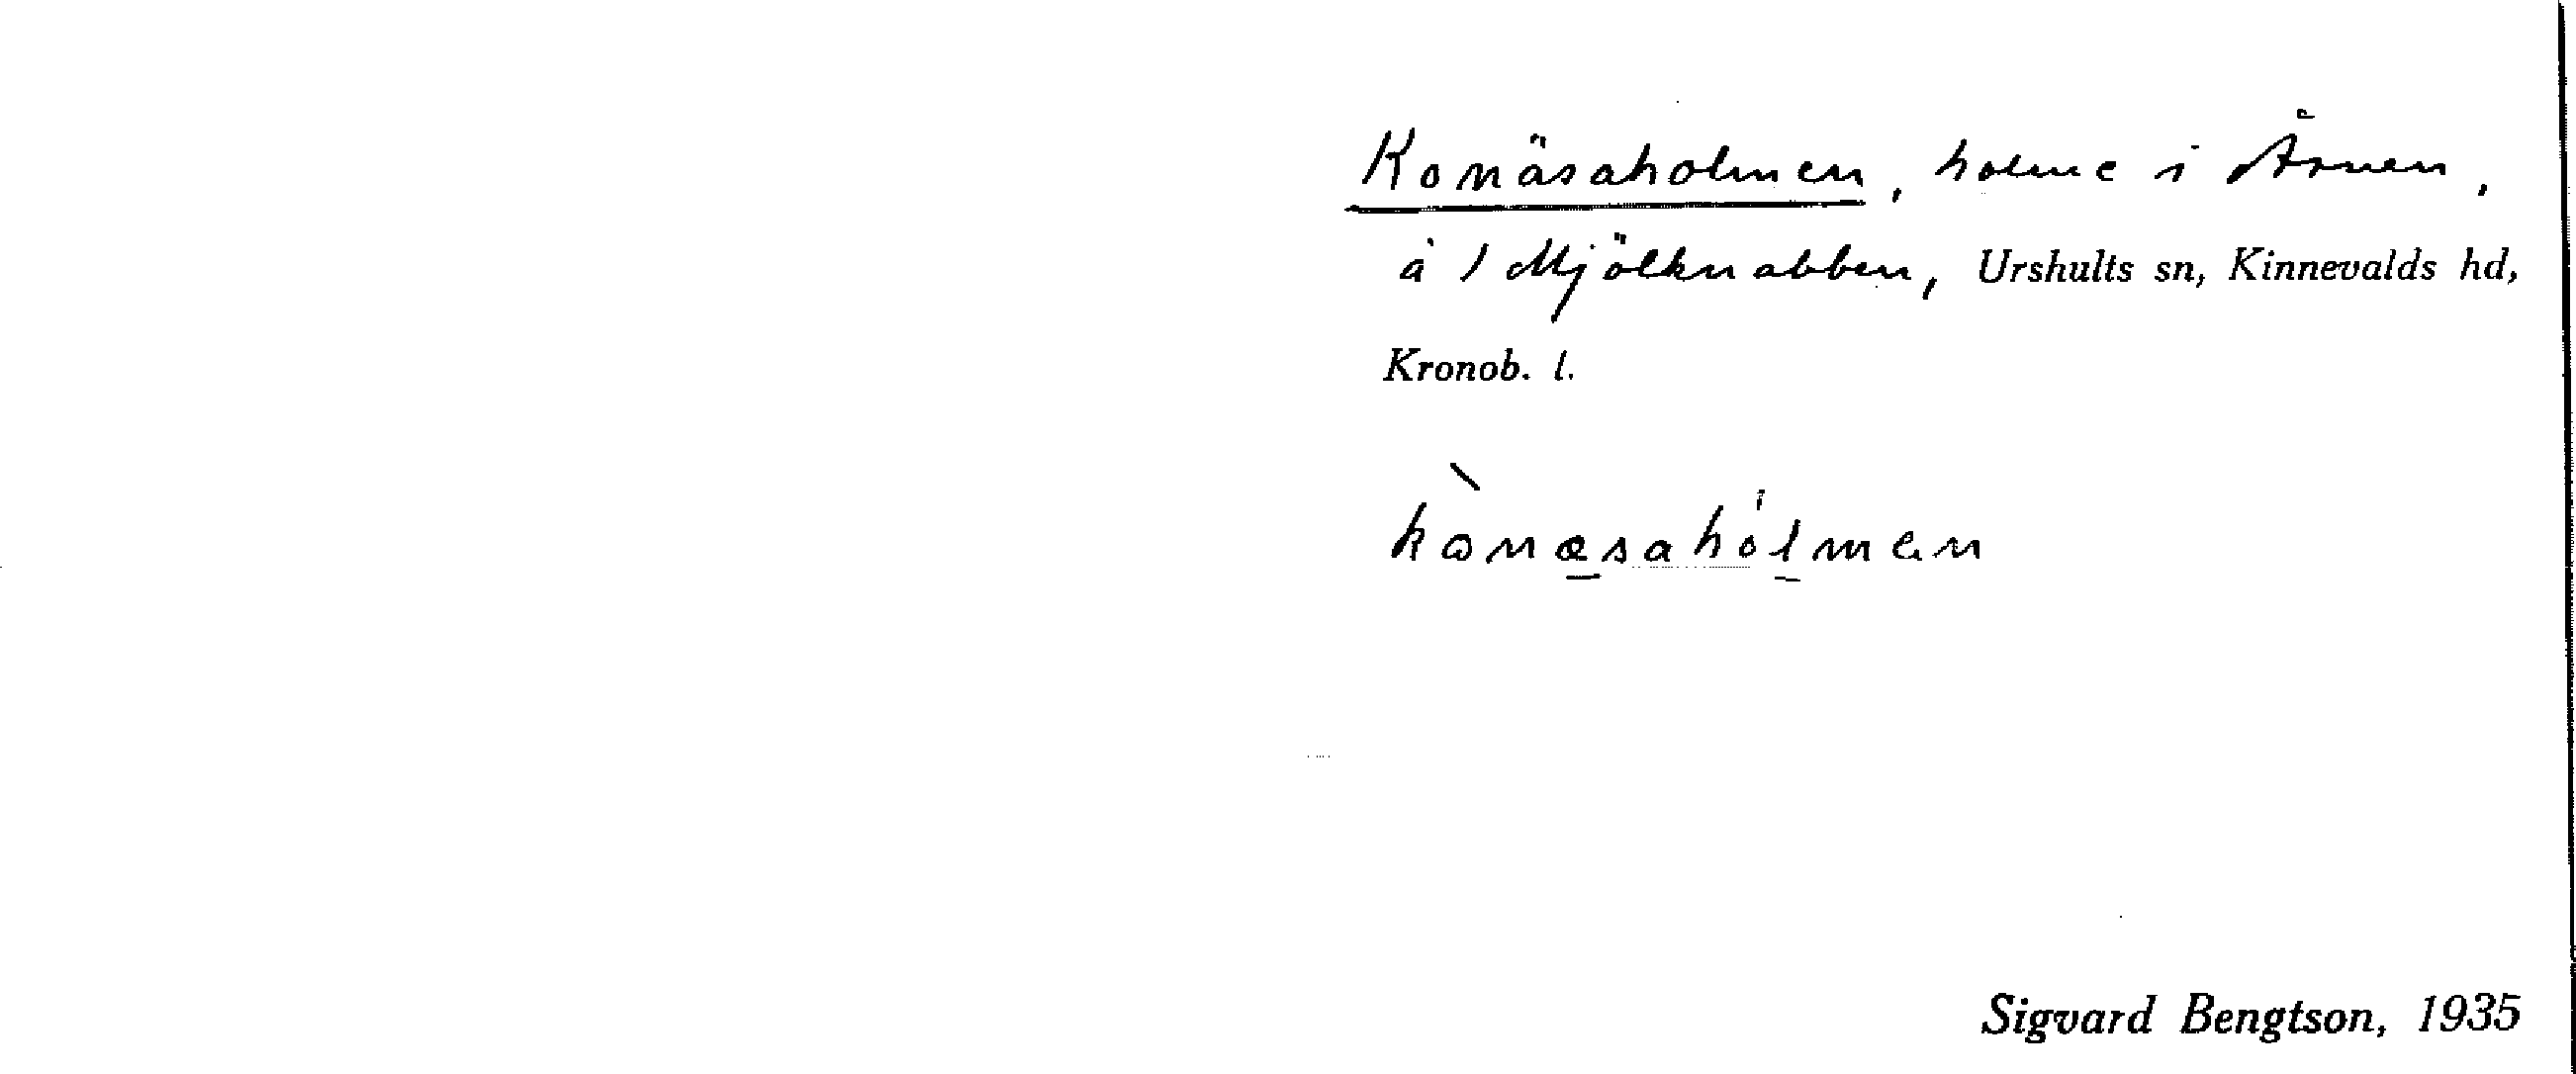 Konäsaholmen, holme i Åsnen,
å 1 Mjölknabben, Urshults sn, Kinnevalds hd,
Kronob. l.
kònæsahólmen
Sigvard Bengtson, 1935